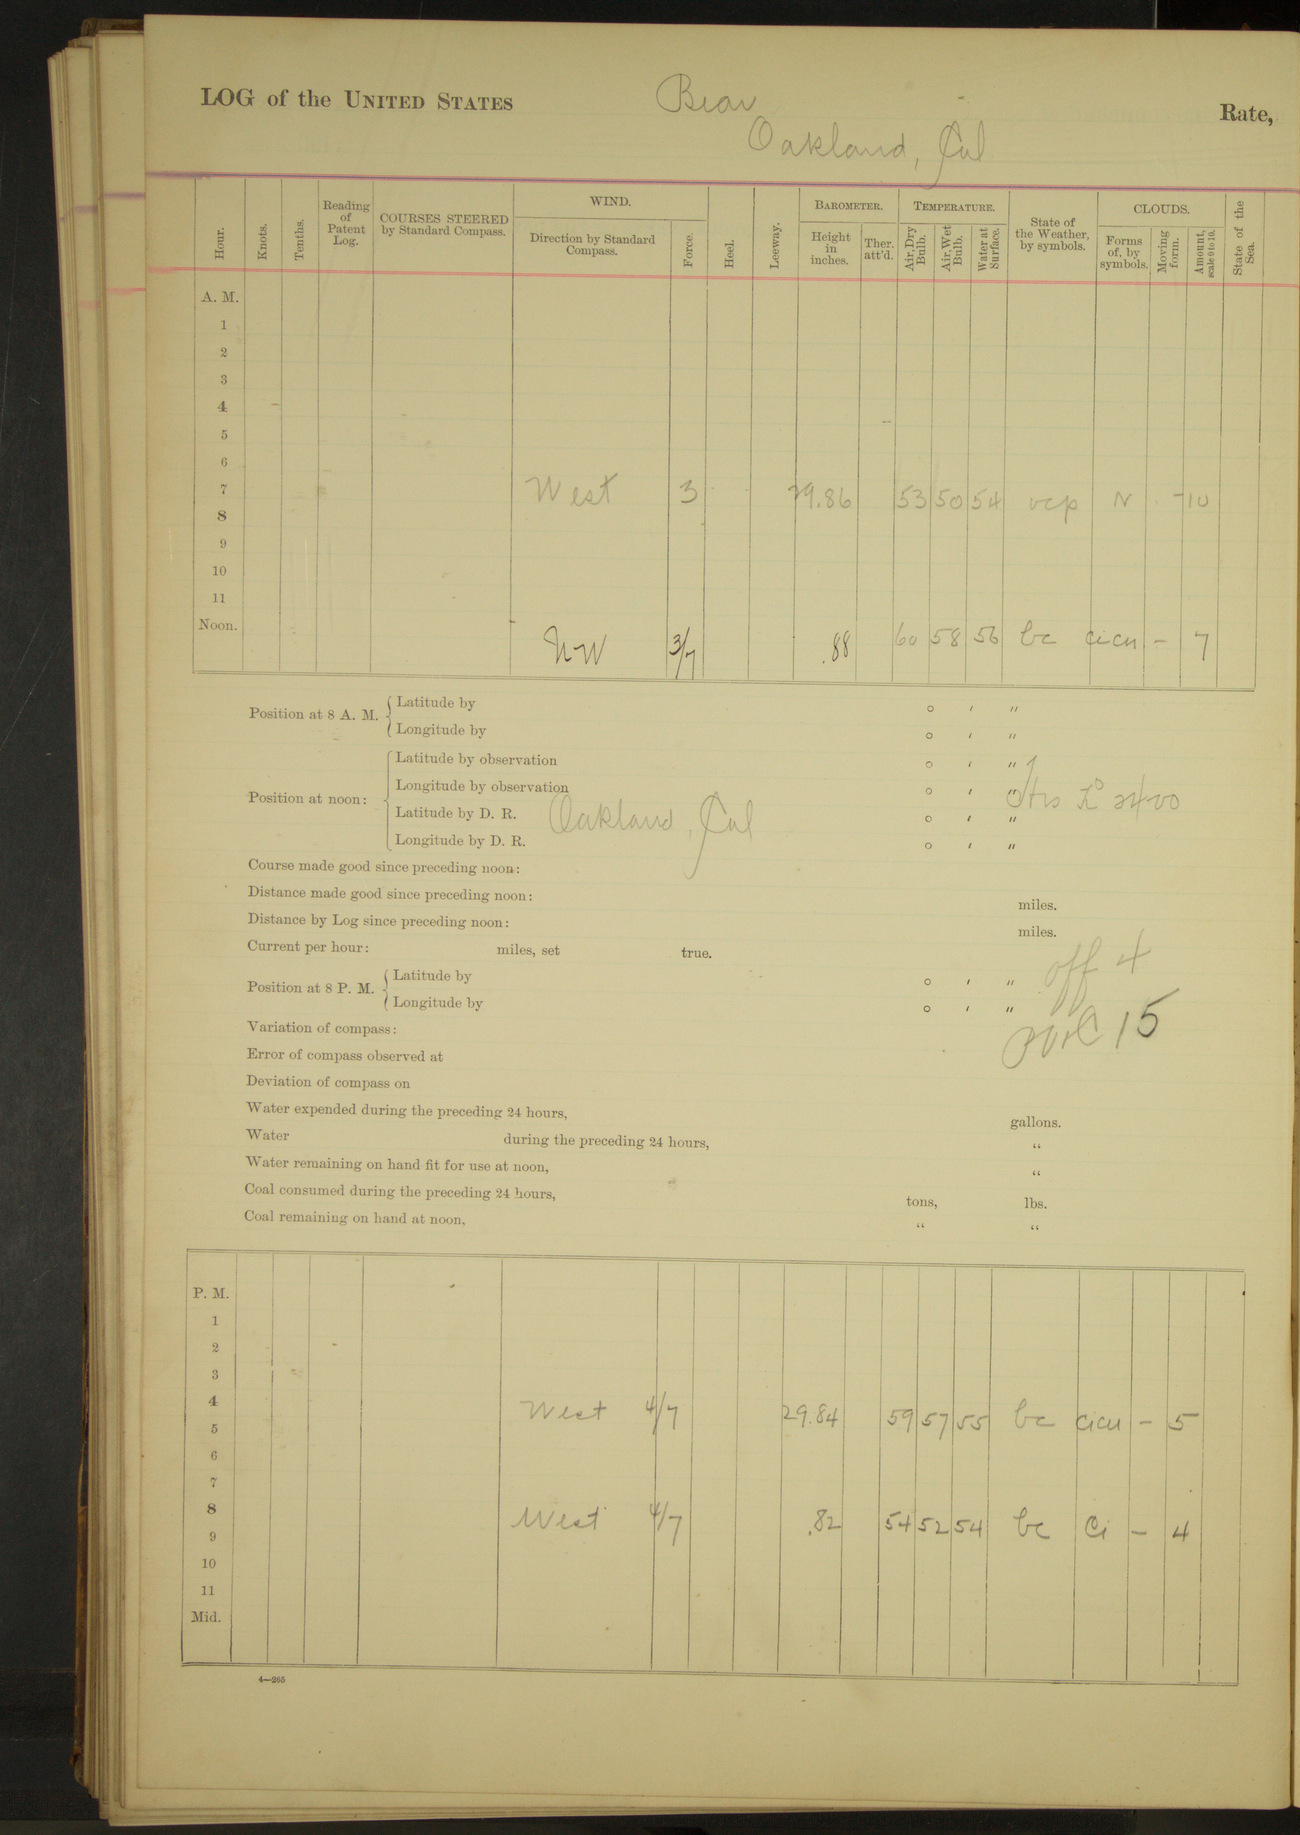 LOG of the UNITED STATES Bear Rate,
Oakland, Cal
Hour. Knots. Tenths. Reading of Patent Log. COURSES STEERED by Standard Compass. WIND. Direction by Standard Compass. Force. Heel. Leeway. BAROMETER. Height in inches. Ther. att'd. TEMPERATURE. Air, Dry Bulb. Air, Wet Bulb. Water at Surface. State of the Weather, by symbols. CLOUDS. Forms of, by symbols. Moving form. Amount, scale 0 to 10. State of the Sea.
A. M.
1
2
3
4
5
6
7 West 3 29.86 53 50 54 ocp N - 10
8
9
10
11
Noon.
NW 3/7 .88 60 58 56 bc cicu - 7
Position at 8 A. M. { Latitude by ° ′ ″
Longitude by ° ′ ″
Position at noon: { Latitude by observation ° ′ ″
Longitude by observation ° ′ ″
Latitude by D. R. Oakland, Cal ° ′ ″ 2400
Longitude by D. R. ° ′ ″
Course made good since preceding noon:
Distance made good since preceding noon: miles.
Distance by Log since preceding noon: miles.
Current per hour: miles, set true.
off 4
Position at 8 P. M. { Latitude by ° ′ ″
Longitude by ° ′ ″
15
Variation of compass:
Error of compass observed at
Deviation of compass on
Water expended during the preceding 24 hours, gallons.
Water during the preceding 24 hours, “
Water remaining on hand fit for use at noon, “
Coal consumed during the preceding 24 hours, tons, lbs.
Coal remaining on hand at noon, “ “
P. M.
1
2
3
4 West 4/7 29.84 59 57 55 bc cicu - 5
5
6
7
8 West 4/7 .82 54 52 54 bc Ci - 4
9
10
11
Mid.
4—265